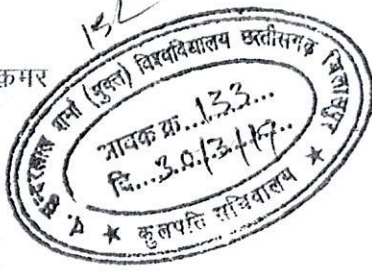 कमर
पं. सुन्दरलाल शर्मा (मुक्त) विश्वविद्यालय छत्तीसगढ़ बिलासपुर
आवक क्र...133...
दि...30/3/17..
★ कुलपति सचिवालय ★